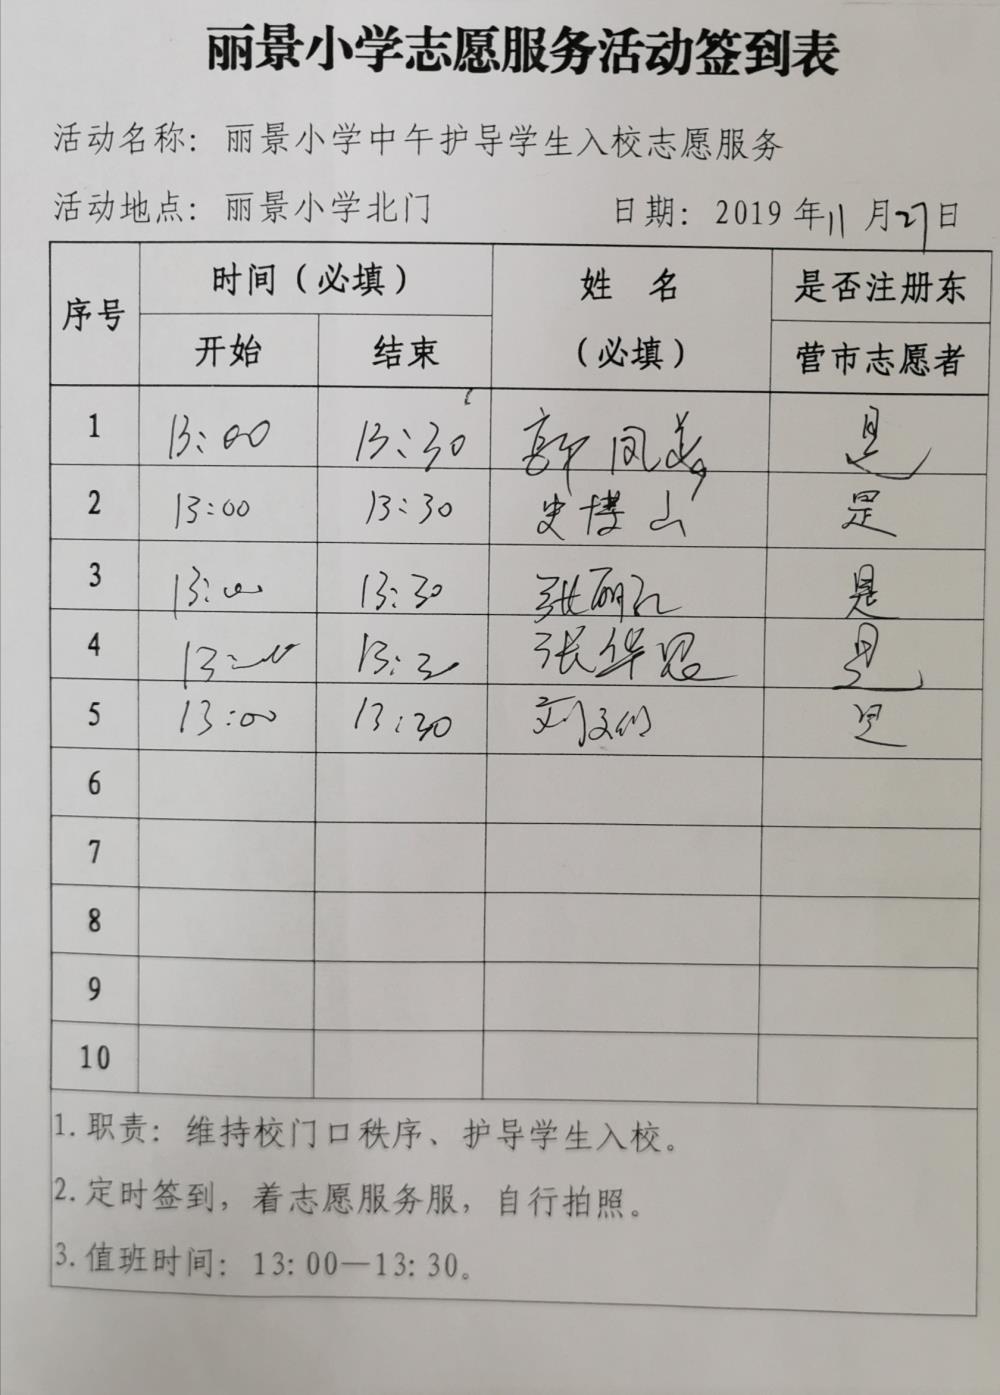 丽景小学志愿服务活动签到表
活动名称：丽景小学中午护导学生入校志愿服务
活动地点：丽景小学北门 日期：2019年11月27日
序号 时间（必填） 姓 名 是否注册东
开始 结束 （必填） 营市志愿者
1 13:00 13:30 郭凤美 是
2 13:00 13:30 史博山 是
3 13:00 13:30 张丽红 是
4 13:00 13:30 张华思 是
5 13:00 13:30 刘文 是
6
7
8
9
10
1.职责：维持校门口秩序、护导学生入校。
2.定时签到，着志愿服务服，自行拍照。
3.值班时间：13:00—13:30。